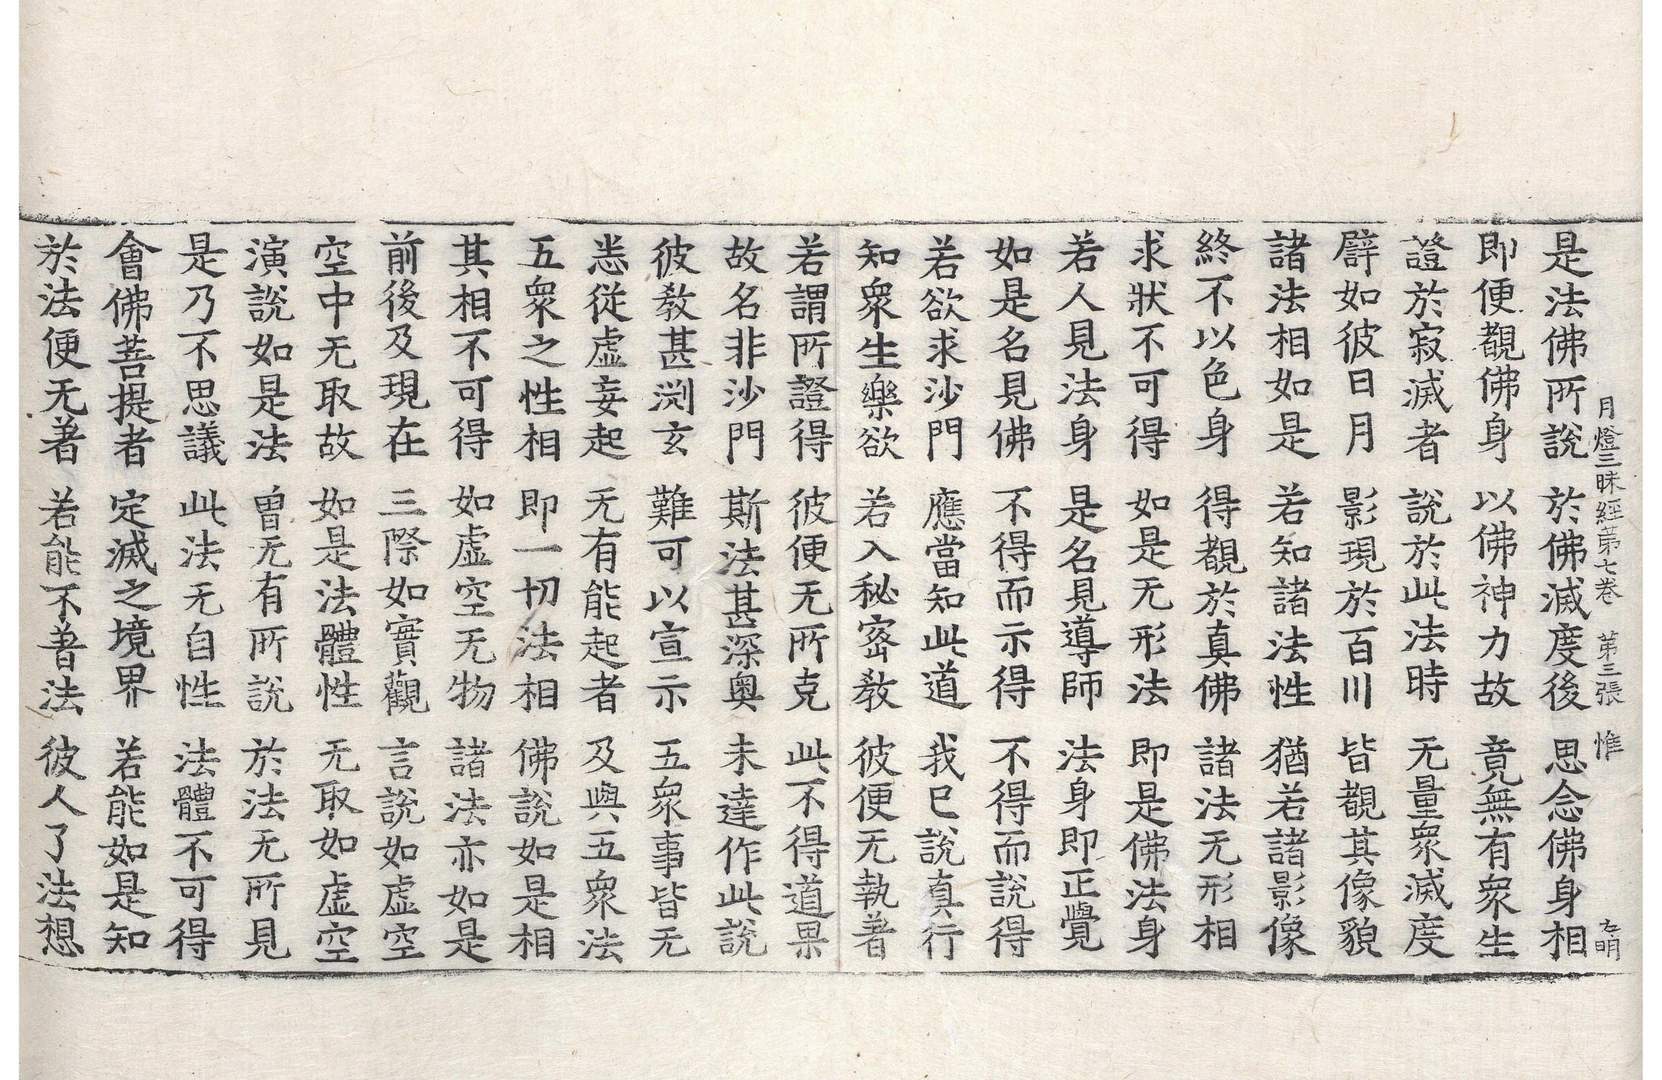 月燈三昧經第七卷　第三張　惟　玄明
是法佛所說　於佛滅度後　思念佛身相
即便覩佛身　以佛神力故　竟無有衆生
證於寂滅者　說於此法時　无量衆滅度
譬如彼日月　影現於百川　皆覩其像貌
諸法相如是　若知諸法性　猶若諸影像
終不以色身　得覩於真佛　諸法无形相
求狀不可得　如是无形法　即是佛法身
若人見法身　是名見導師　法身即正覺
如是名見佛　不得而示得　不得而說得
若欲求沙門　應當知此道　我已說真行
知衆生樂欲　若入秘密教　彼便无執著
若謂所證得　彼便无所克　此不得道果
故名非沙門　斯法甚深奧　未達作此說
彼教甚渕玄　難可以宣示　五衆事皆无
悉從虛妄起　无有能起者　及與五衆法
五衆之性相　即一切法相　佛說如是相
其相不可得　如虛空无物　諸法亦如是
前後及現在　三際如實觀　言說如虛空
空中无取故　如是法體性　无取如虛空
演說如是法　曾无有所說　於法无所見
是乃不思議　此法无自性　法體不可得
會佛菩提者　定滅之境界　若能如是知
於法便无著　若能不著法　彼人了法想